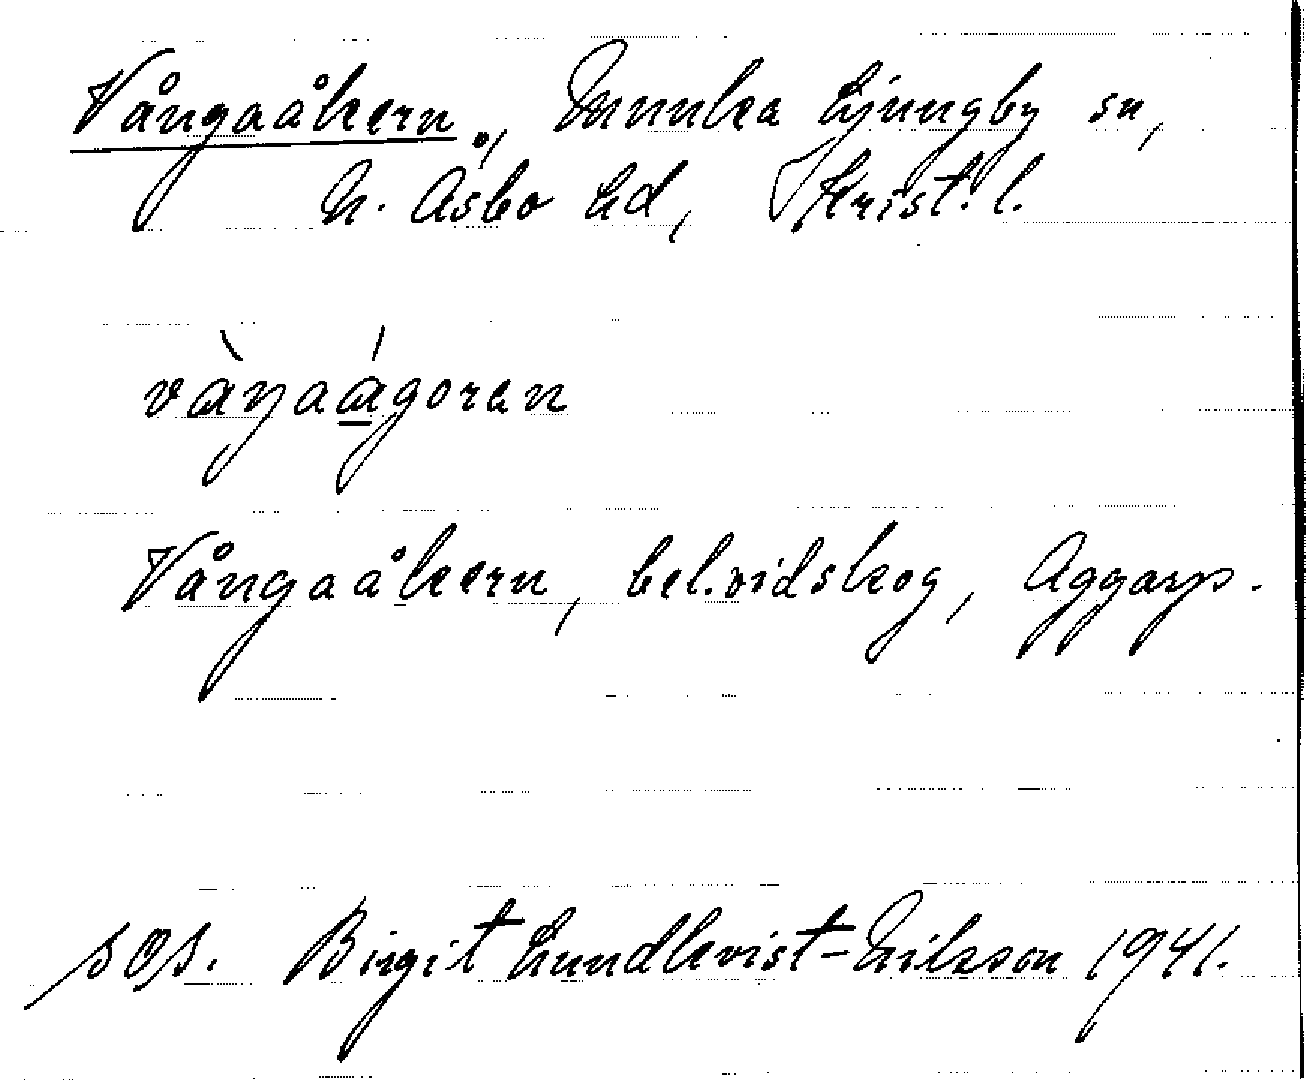 Vångaåkern, Munka Ljungby sn,
N. Åsbo hd, Krist. l.
vàŋaágoren
Vångaåkern, bel. vid skog, Aggarp.
SOS. Birgit Lundkvist-Nilsson 1941.